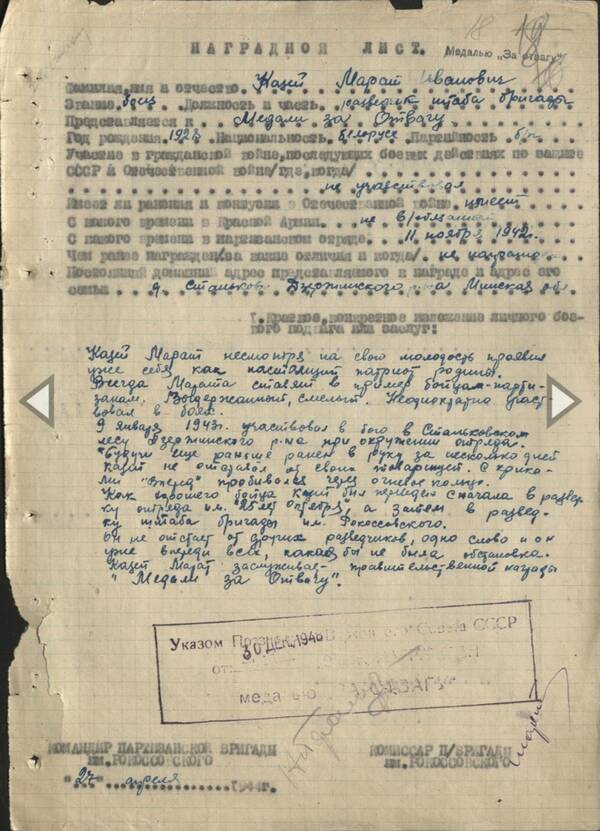 18
НАГРАДНОЙ ЛИСТ. Медалью „За отвагу"
Фамилия, имя и отчество Казей Марат Иванович
Звание боец Должность и часть разведчик штаба бригады
Представляется к Медали за Отвагу
Год рождения Национальность белорус Партийность б/п
Участие в гражданской войне, последующих боевых действиях по защите
СССР и Отечественной войне/где, когда/
не участвовал
Имеет ли ранения и контузии в Отечественной войне имеет
С какого времени в Красной Армии не в/обязанный
С какого времени в партизанском отряде 11 ноября 1942г.
Чем ранее награжден/за какие отличия и когда/ не награжден
Постоянный домашний адрес представляемого к награде и адрес его
семьи д. Станьково Дзержинского р-на Минская обл
I. Краткое, конкретное изложение личного бое-
вого подвига или заслуг:
Казей Марат несмотря на свою молодость проявил
уже себя как настоящий патриот родины.
Всегда Марата ставят в пример бойцам-парти-
занам. Выдержанный, смелый. Неоднократно участ-
вовал в боях.
9 января 1943г. участвовал в бою в Станьковском
лесу Дзержинского р-на при окружении отряда.
Будучи еще раньше ранен в руку за несколько дней
Казей не отставал от своих товарищей. С крика-
ми "Вперед" пробивался через огневое кольцо.
Как хорошего бойца Казей был переведен сначала в развед-
ку отряда им. "25 лет Октября", а затем в развед-
ку штаба бригады им. Рокоссовского.
Он не отстает от других разведчиков, одно слово и он
уже впереди всех, какая бы не была обстановка.
Казей Марат заслуживает правительственной награды
"Медали за Отвагу".
Указом Совета СССР
30 ДЕК. 1946
от
медалью
КОМАНДИР ПАРТИЗАНСКОЙ БРИГАДЫ
ИМ. РОКОССОВСКОГО
КОМИССАР П/БРИГАДЫ
ИМ. РОКОССОВСКОГО
"27" апреля 1944г.